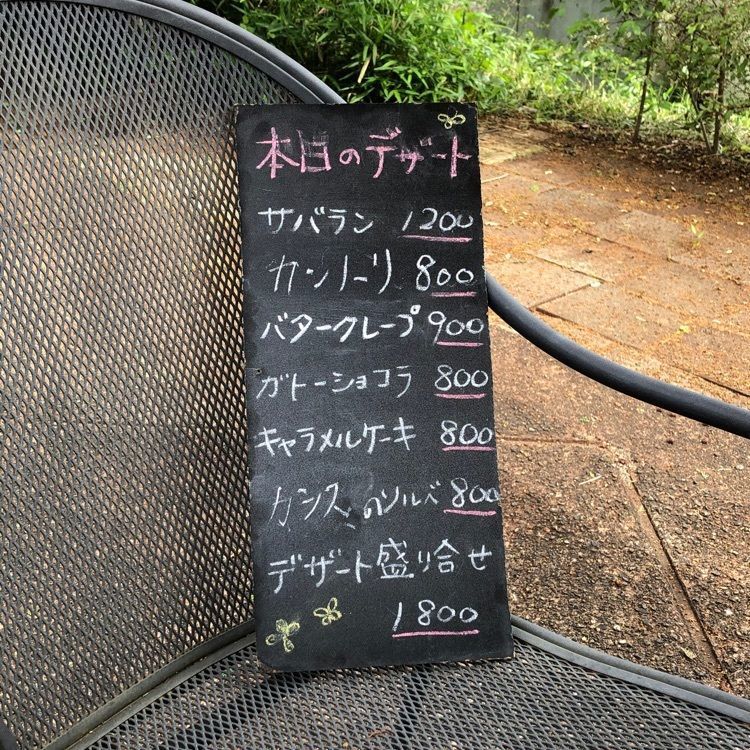 本日のデザート
サバラン 1200
カンノーリ 800
バタークレープ 900
ガトーショコラ 800
キャラメルケーキ 800
カシスのソルベ 800
デザート盛り合せ
1800